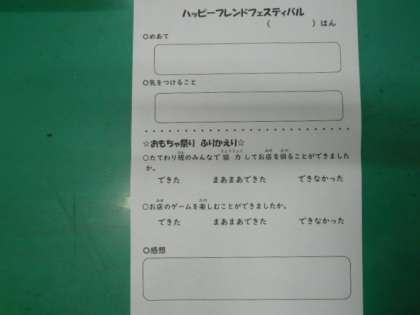 ハッピーフレンドフェスティバル
(　　　　　)はん
○めあて
○気をつけること
☆おもちゃ祭り ふりかえり☆
○たてわり班のみんなで協力してお店を回ることができました
か。
できた　　まあまあできた　　できなかった
○お店のゲームを楽しむことができましたか。
できた　　まあまあできた　　できなかった
○感想